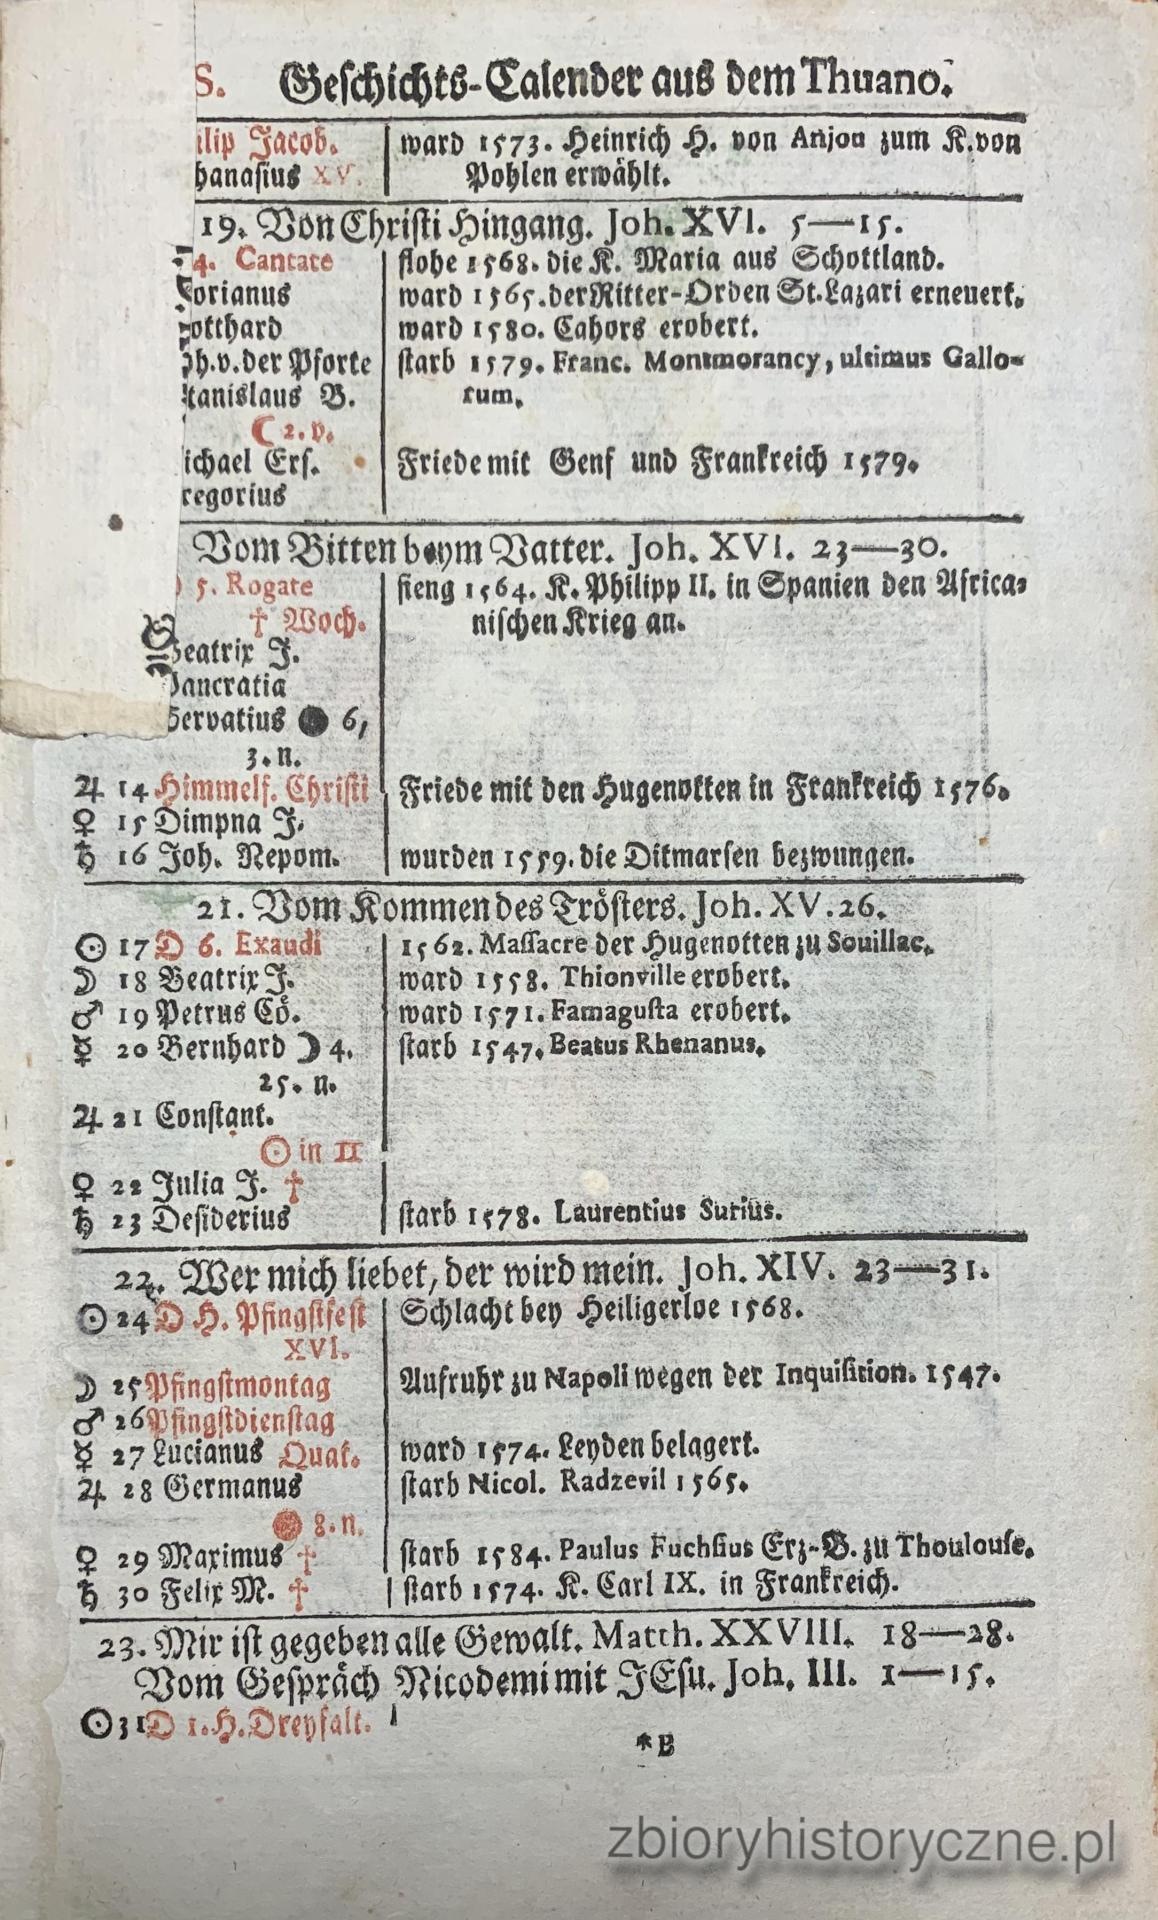 S. Geschichts-Calender aus dem Thuano.
ilip Jacob. ward 1573. Heinrich H. von Anjou zum K. von
hanasius XV. Pohlen erwählt.
19. Von Christi Hingang. Joh. XVI. 5—15.
4. Cantate flohe 1568. die K. Maria aus Schottland.
orianus ward 1565. der Ritter-Orden St. Lazari erneuert.
otthard ward 1580. Cahors erobert.
h. v. der Pforte starb 1579. Franc. Montmorancy, ultimus Gallo-
tanislaus B. rum.
☾ 2. v.
ichael Ers. Friede mit Genf und Frankreich 1579.
regorius
Vom Bitten beym Vatter. Joh. XVI. 23—30.
5. Rogate fieng 1564. K. Philipp II. in Spanien den Africa-
† Woch. nischen Krieg an.
Beatrix J.
Pancratia
Servatius ● 6,
3. n.
♃ 14 Himmelf. Christi Friede mit den Hugenotten in Frankreich 1576.
♀ 15 Dimpna J.
♄ 16 Joh. Nepom. wurden 1559. die Ditmarsen bezwungen.
21. Vom Kommen des Trösters. Joh. XV. 26.
☉ 17 D 6. Exaudi 1562. Massacre der Hugenotten zu Souillac.
☽ 18 Beatrix J. ward 1558. Thionville erobert.
♂ 19 Petrus Cö. ward 1571. Famagusta erobert.
☿ 20 Bernhard ☽ 4. starb 1547. Beatus Rhenanus.
25. n.
♃ 21 Constant.
☉ in II
♀ 22 Julia J. †
♄ 23 Desiderius starb 1578. Laurentius Surius.
22. Wer mich liebet, der wird mein. Joh. XIV. 23—31.
☉ 24 D H. Pfingstfest Schlacht bey Heiligerloe 1568.
XVI.
☽ 25 Pfingstmontag Aufruhr zu Napoli wegen der Inquisition. 1547.
♂ 26 Pfingstdienstag
☿ 27 Lucianus Quat. ward 1574. Leyden belagert.
♃ 28 Germanus starb Nicol. Radzevil 1565.
● 8. n.
♀ 29 Maximus † starb 1584. Paulus Fuchsius Erz-B. zu Thoulouse.
♄ 30 Felix M. † starb 1574. K. Carl IX. in Frankreich.
23. Mir ist gegeben alle Gewalt. Matth. XXVIII. 18—28.
Vom Gespräch Nicodemi mit JEsu. Joh. III. 1—15.
☉ 31 D 1. H. Dreyfalt.
*B
zbioryhistoryczne.pl